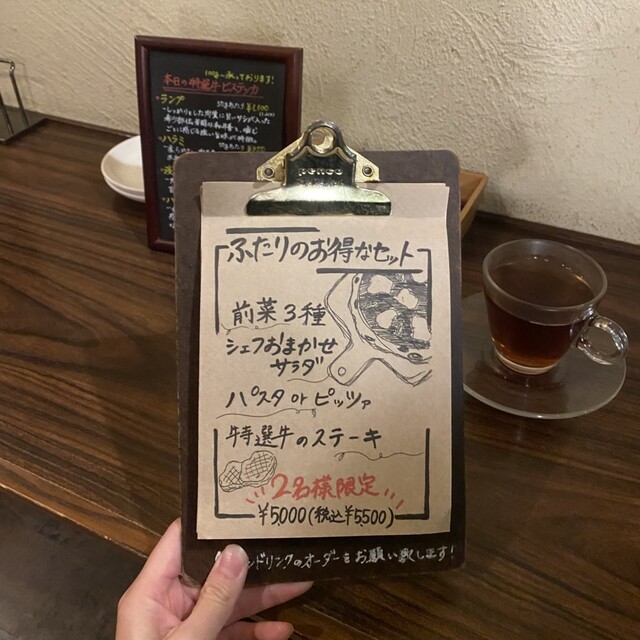 100g〜承っております!
本日の特選牛ビステッカ
・ランプ
¥1,100
・ハラミ
ふたりのお得なセット
前菜3種
シェフおまかせ
サラダ
パスタ or ピッツァ
特選牛のステーキ
2名様限定
¥5000(税込¥5500)
ンドリンクのオーダーをお願い致します!